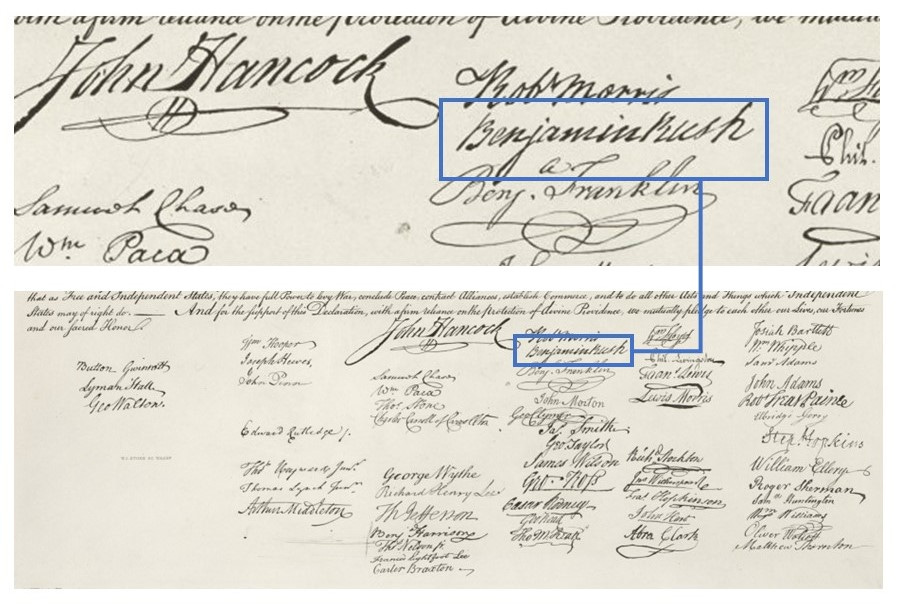 John Hancock
Robt Morris
Benjamin Rush
Benj. Franklin
Samuel Chase
Wm. Paca
Phil.
that as Free and Independent States, they have full Power to levy War, conclude Peace, contract Alliances, establish Commerce, and to do all other Acts and Things which Independent
States may of right do. — And for the support of this Declaration, with a firm reliance on the protection of divine Providence, we mutually pledge to each other our Lives, our Fortunes
and our sacred Honor.
John Hancock
Button Gwinnett
Lyman Hall
Geo Walton.
Wm Hooper
Joseph Hewes,
John Penn
Edward Rutledge /.
Thos Heyward Junr.
Thomas Lynch Junr.
Arthur Middleton
Samuel Chase
Wm. Paca
Thos. Stone
Charles Carroll of Carrollton
George Wythe
Richard Henry Lee
Th Jefferson
Benj Harrison
Thos Nelson jr.
Francis Lightfoot Lee
Carter Braxton
Robt Morris
Benjamin Rush
Benj. Franklin
John Morton
Geo Clymer
Jas. Smith
Geo. Taylor
James Wilson
Geo. Ross
Caesar Rodney
Geo Read
Tho M:Kean
Wm Floyd
Phil. Livingston
Frans. Lewis
Lewis Morris
Richd. Stockton
Jno Witherspoon
Fras. Hopkinson
John Hart
Abra Clark
Josiah Bartlett
Wm. Whipple
Saml Adams
John Adams
Robt Treat Paine
Elbridge Gerry
Step. Hopkins
William Ellery
Roger Sherman
Saml Huntington
Wm. Williams
Oliver Wolcott
Matthew Thornton